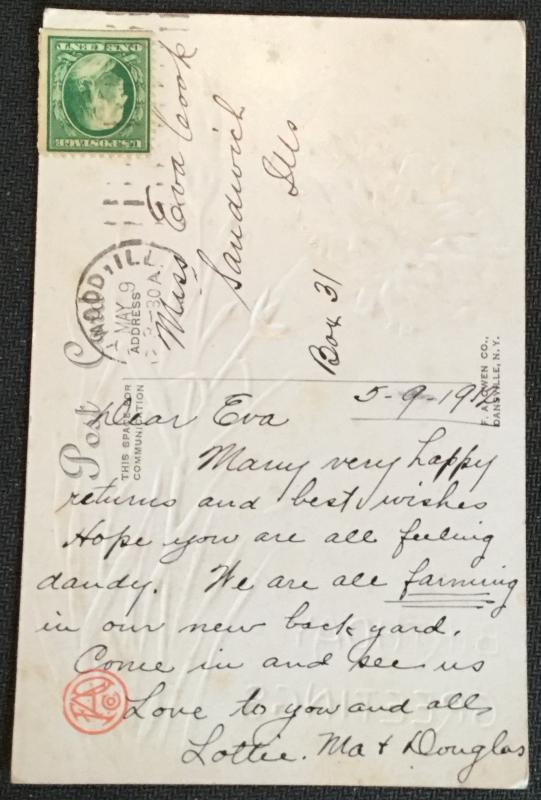 U.S. POSTAGE
ONE CENT
Post Card
WOOD, ILL.
MAY 9
30 A.
ADDRESS
THIS SPACE FOR
COMMUNICATION
F. A. OWEN CO.,
DANSVILLE, N.Y.
Miss Eva Cook
Sandwich
Ills
Box 31
5-9-19
Dear Eva
Many very happy
returns and best wishes
Hope you are all feeling
dandy. We are all farming
in our new back yard.
Come in and see us
Love to you and all
Lottie. Ma + Douglas
BIRTHDAY
GREETINGS